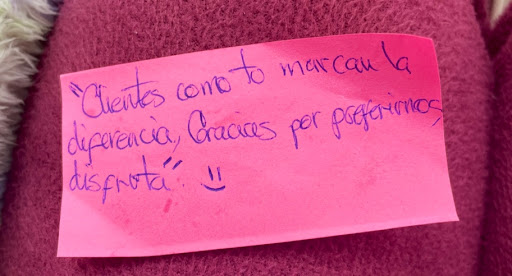 "Clientes como to marcan la
diferencia,, Gracias por preferirnos,
disfruta". ت